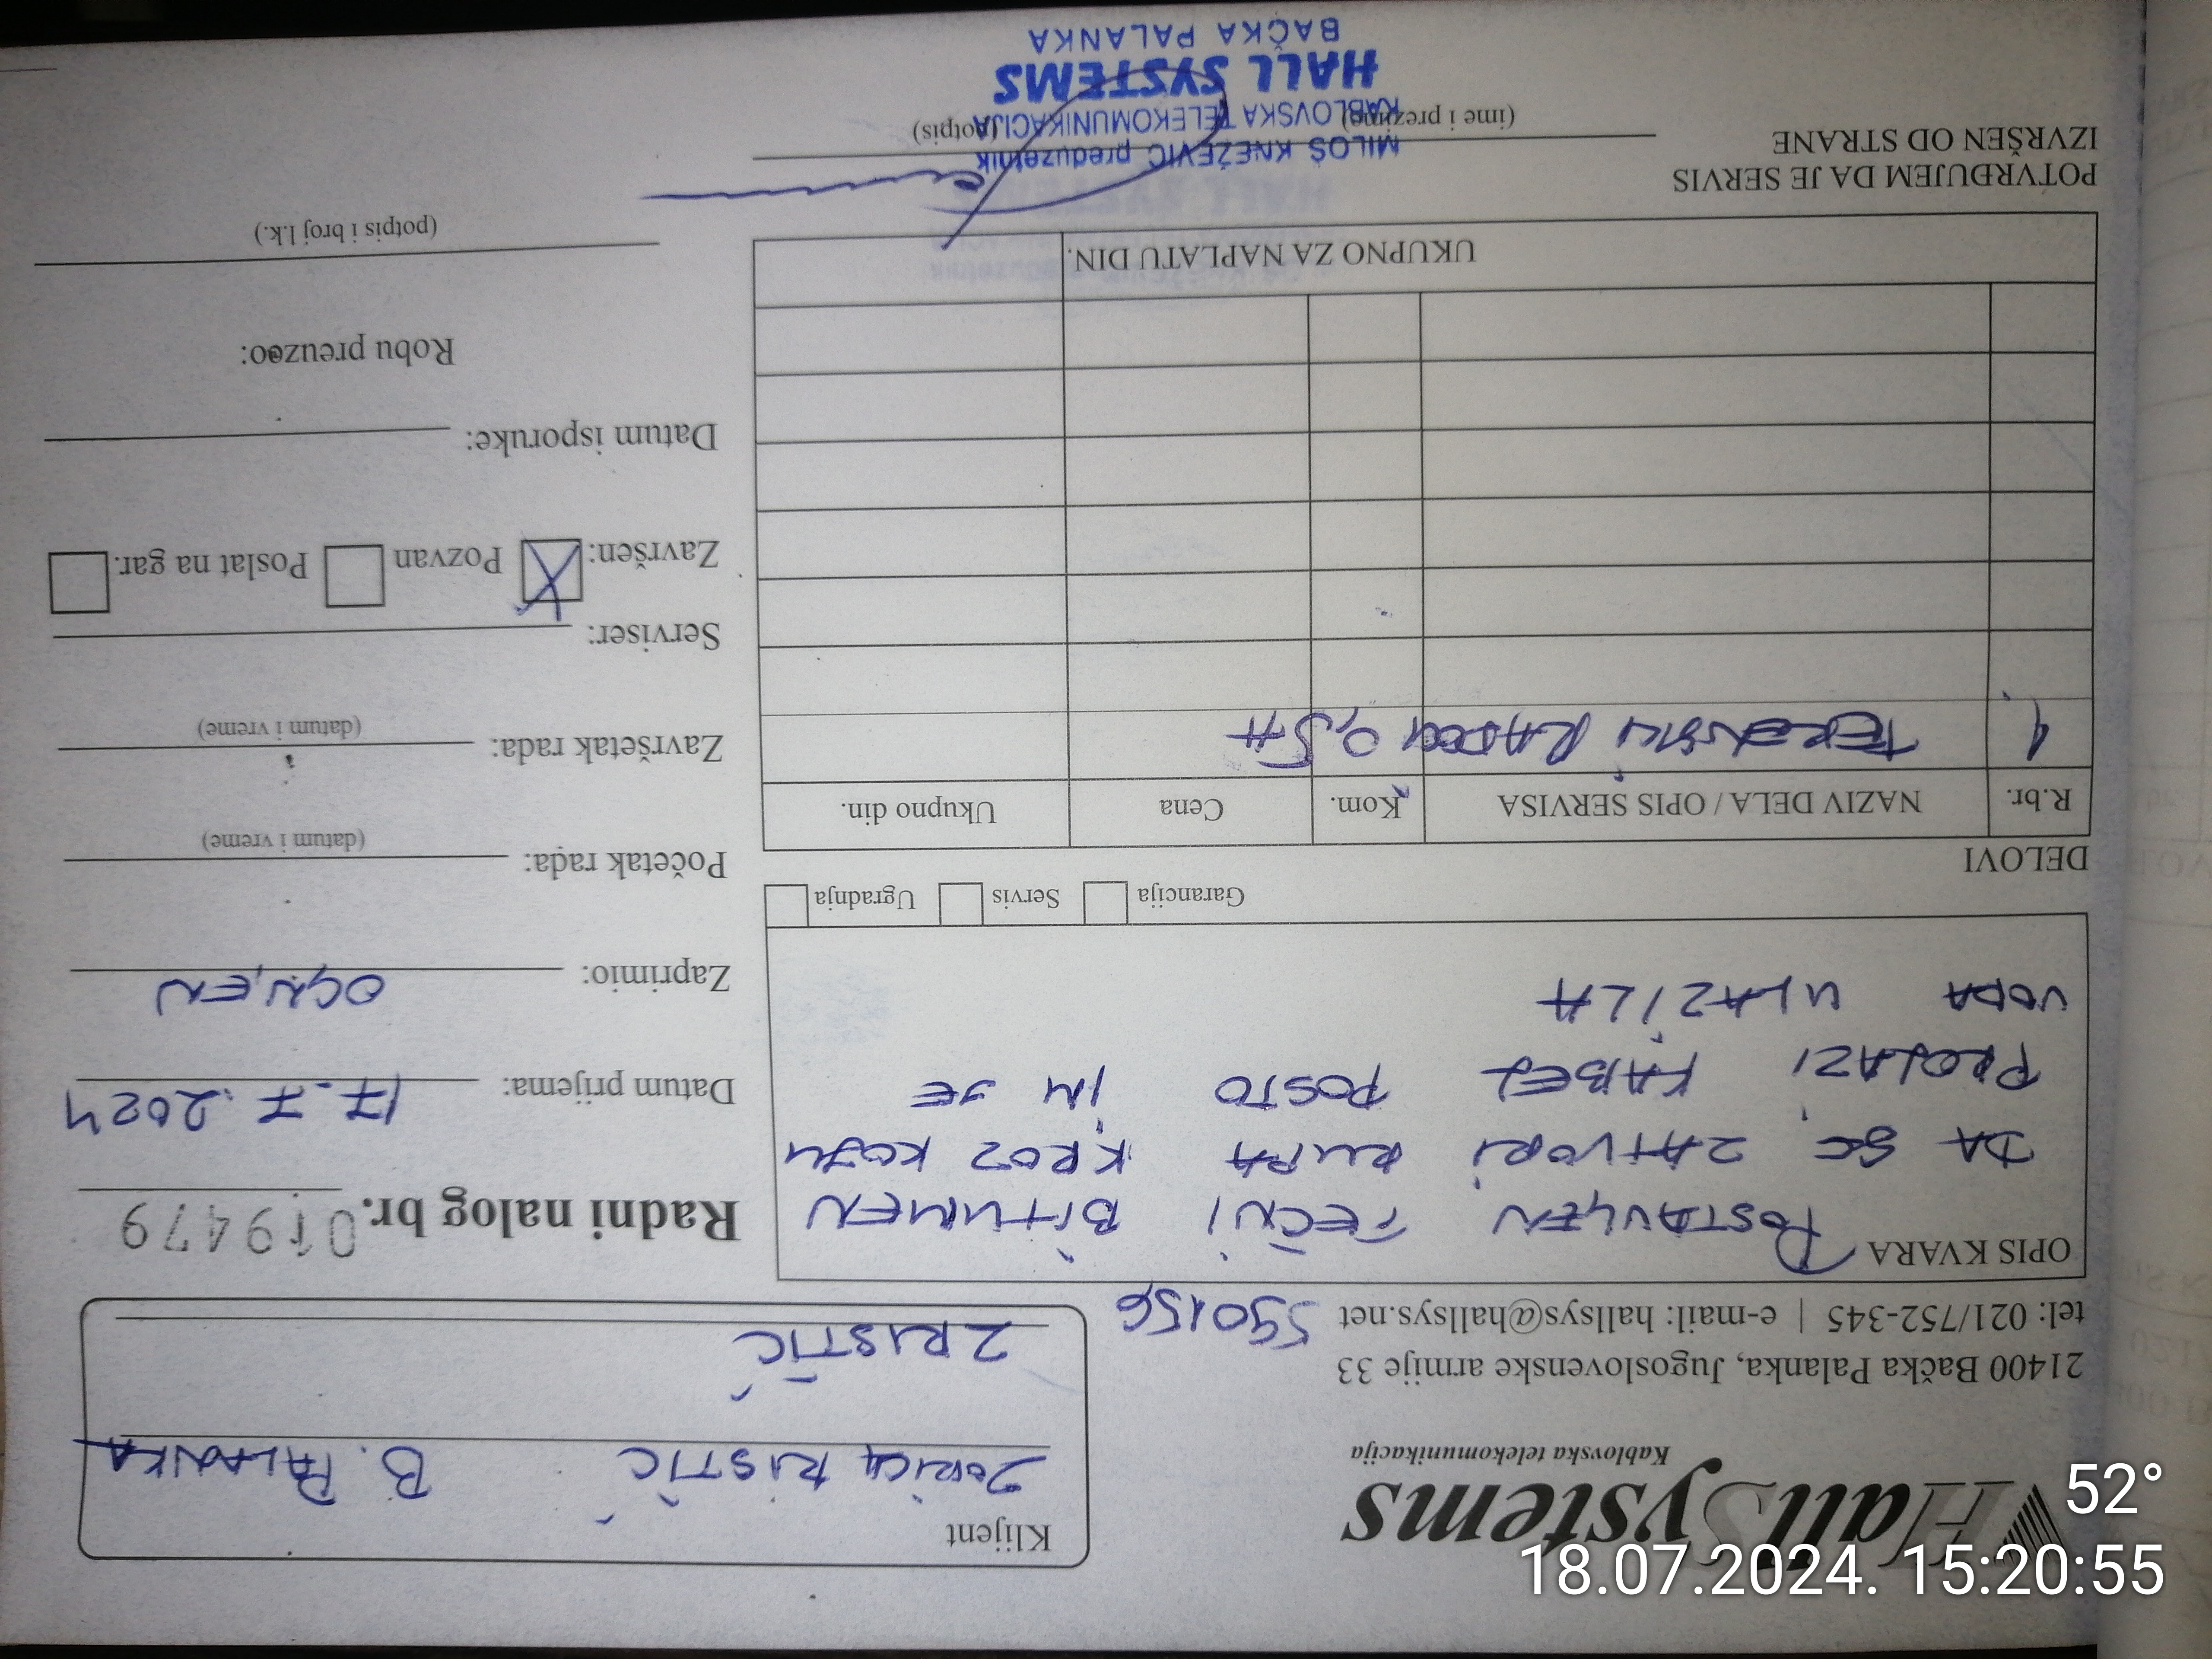 HallSystems
Kablovska telekomunikacija
21400 Bačka Palanka, Jugoslovenske armije 33
tel: 021/752-345 | e-mail: hallsys@hallsys.net
590156
Klijent
ZORICA RISTIĆ B. PALANKA
ZRISTIĆ
Radni nalog br. 019479
OPIS KVARA
POSTAVLJEN TEČNI BITUMEN
DA SE ZATVORI RUPA KROZ KOJU
PROLAZI KABEL POSTO IM JE
VODA ULAZILA
Garancija Servis Ugradnja
Datum prijema: 17.7.2024
Zaprimio: OGNJEN
Početak rada:
(datum i vreme)
Završetak rada:
(datum i vreme)
Serviser:
Završen: X Pozvan Poslat na gar.
Datum isporuke:
Robu preuzeo:
(potpis i broj l.k.)
DELOVI
R.br. NAZIV DELA / OPIS SERVISA Kom. Cena Ukupno din.
1. TERENSKI RADOVI 0,5H
UKUPNO ZA NAPLATU DIN.
POTVRĐUJEM DA JE SERVIS
IZVRŠEN OD STRANE
(ime i prezime) (potpis)
MILOŠ KNEŽEVIĆ preduzetnik
KABLOVSKA TELEKOMUNIKACIJA
HALL SYSTEMS
BAČKA PALANKA
52°
18.07.2024. 15:20:55